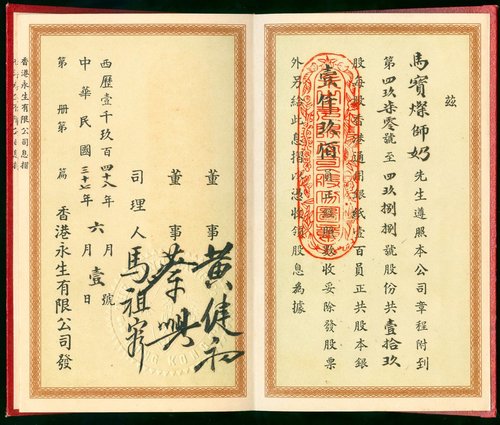 茲
馬寶燦師奶先生遵照本公司章程附到
第四玖柒零號至四玖捌捌號股份共壹拾玖
股每股香港通用銀紙壹百員正共股本銀
壹仟玖佰員正所收妥除發股票
外另給此息摺以憑收領股息為據
董事黃健初
董事
司理人馬祖容
西歷壹千玖百四十八年六月壹號
中華民國三十七年 月 日
第 冊第 篇 香港永生有限公司發
香港永生有限公司息摺